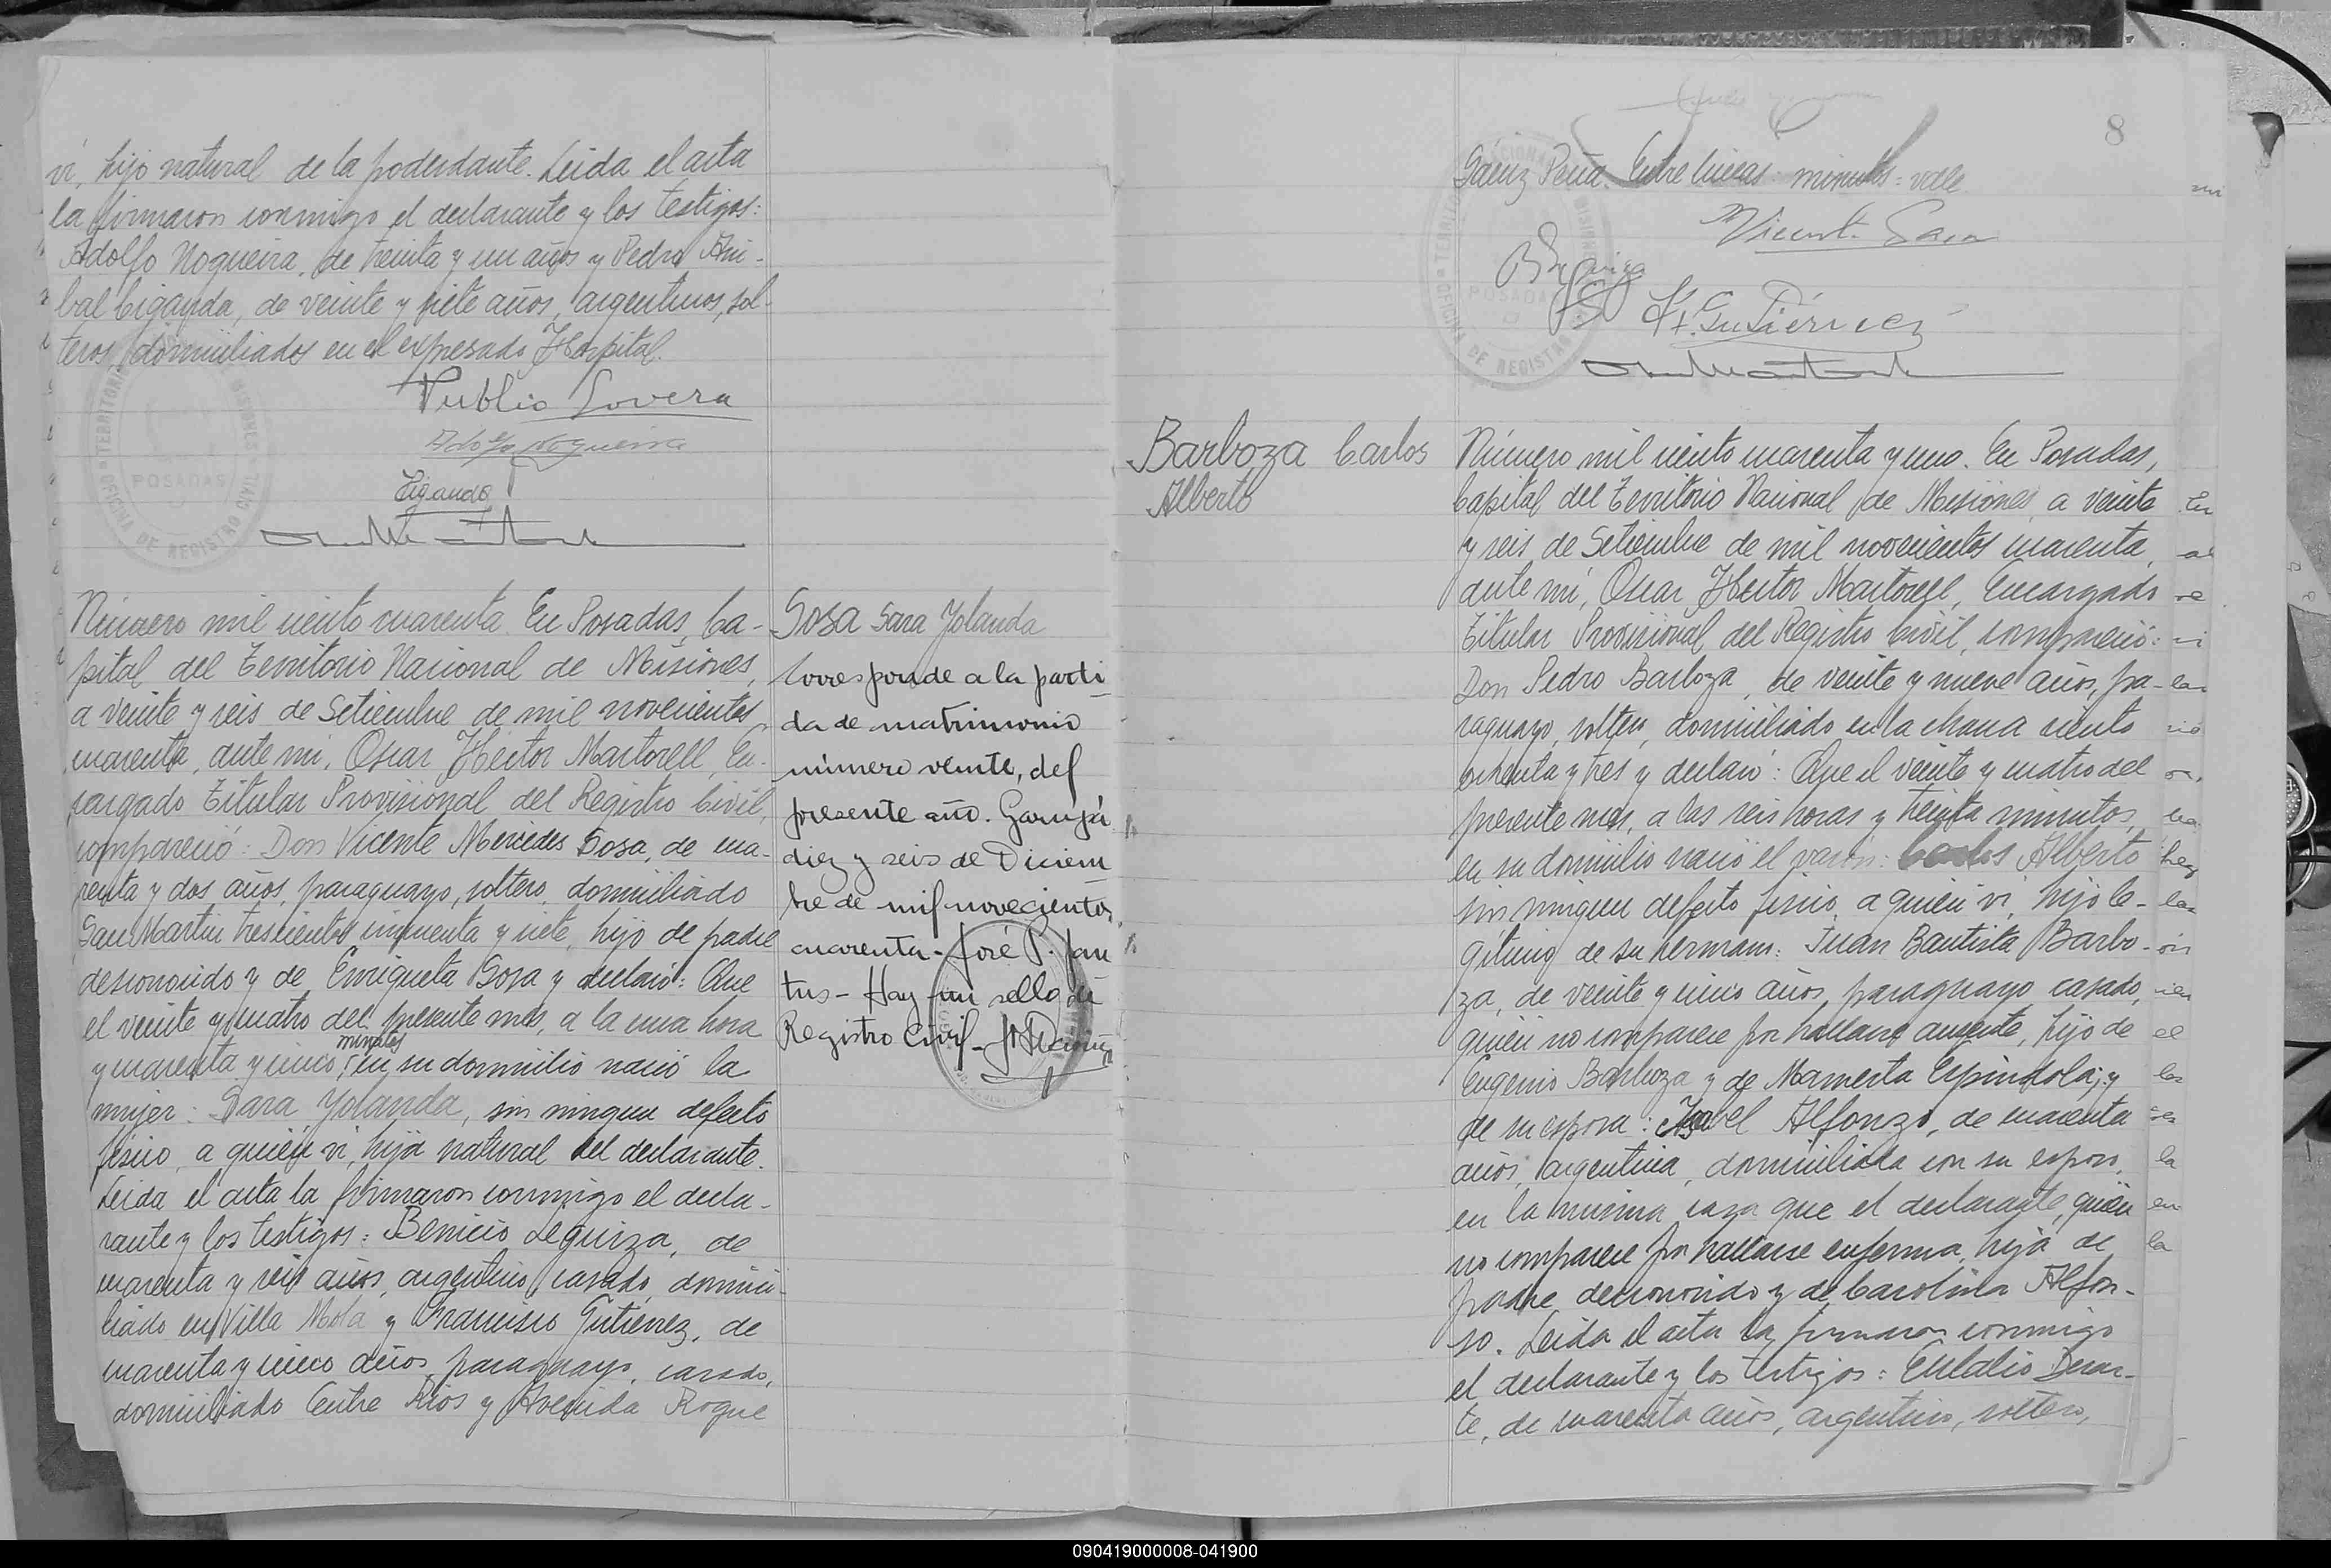 vi, hijo natural de la poderdante. Leida el acta
la firmaron conmigo el declarante y los testigos:
Adolfo Nogueira, de treinta y un años y Pedro Aní-
bal Ciganda, de veinte y siete años, argentinos, sol-
teros, domiciliados en el expresado Hospital.
Publio Lovera
Adolfo Nogueira
Ciganda
OFICINA DE REGISTRO CIVIL
POSADAS
Número mil ciento cuarenta. En Posadas, Ca-
pital del Territorio Nacional de Misiones,
a veinte y seis de Setiembre de mil novecientos
cuarenta, ante mi, Oscar Hector Martorell, En-
cargado Titular Provisional del Registro Civil,
compareció: Don Vicente Mercedes Sosa, de cua-
renta y dos años, paraguayo, soltero, domiciliado
San Martin trescientos cincuenta y siete, hijo de padre
desconocido y de Enriqueta Sosa y declaró: Que
el veinte y cuatro del presente mes, a la una hora
y cuarenta y cinco minutos, en su domicilio nació la
mujer: Sara Yolanda, sin ningun defecto
fisico, a quién vi, hija natural del declarante.
Leida el acta la firmaron conmigo el decla-
rante y los testigos: Benicio Leguiza, de
cuarenta y seis años, argentino, casado, domici-
liado en Villa Mola y Francisco Gutierrez, de
cuarenta y cinco años, paraguayo, casado,
domiciliado Entre Rios y Avenida Roque
Sosa Sara Yolanda
Corresponde a la parti-
da de matrimonio
número veinte, del
presente año. Garupá
diez y seis de Diciem-
bre de mil novecientos
cuarenta - José P. San
tus - Hay un sello de
Registro Civil -
8
Sáenz Peña. Entre lineas: minutos: vale
Vicente Sosa
B Leguiza
F. Gutiérrez
POSADAS
OFICINA DE REGISTRO
Barboza Carlos
Alberto
Número mil ciento cuarenta y uno. En Posadas,
Capital del Territorio Nacional de Misiones, a veinte
y seis de Setiembre de mil novecientos cuarenta,
ante mi, Oscar Hector Martorell, Encargado
Titular Provisional del Registro Civil, compareció:
Don Pedro Barboza, de veinte y nueve años, pa-
raguayo, soltero, domiciliado en la chacra ciento
ochenta y tres y declaró: Que el veinte y cuatro del
presente mes, a las seis horas y treinta minutos,
en su domicilio nació el varón: Carlos Alberto
sin ningun defecto fisico, a quién vi, hijo le-
gítimo de su hermano: Juan Bautista Barbo-
za, de veinte y cinco años, paraguayo, casado,
quién no comparece por hallarse ausente, hijo de
Eugenio Barboza y de Mamerta Espindola; y
de su esposa: Isabel Alfonzo, de cuarenta
años, argentina, domiciliada con su esposo,
en la misma casa que el declarante, quién
no comparece por hallarse enferma, hija de
padre desconocido y de Carolina Alfon-
so. Leida el acta la firmaron conmigo
el declarante y los testigos: Eulalio Duar-
te, de cuarenta años, argentino, soltero,
090419000008-041900